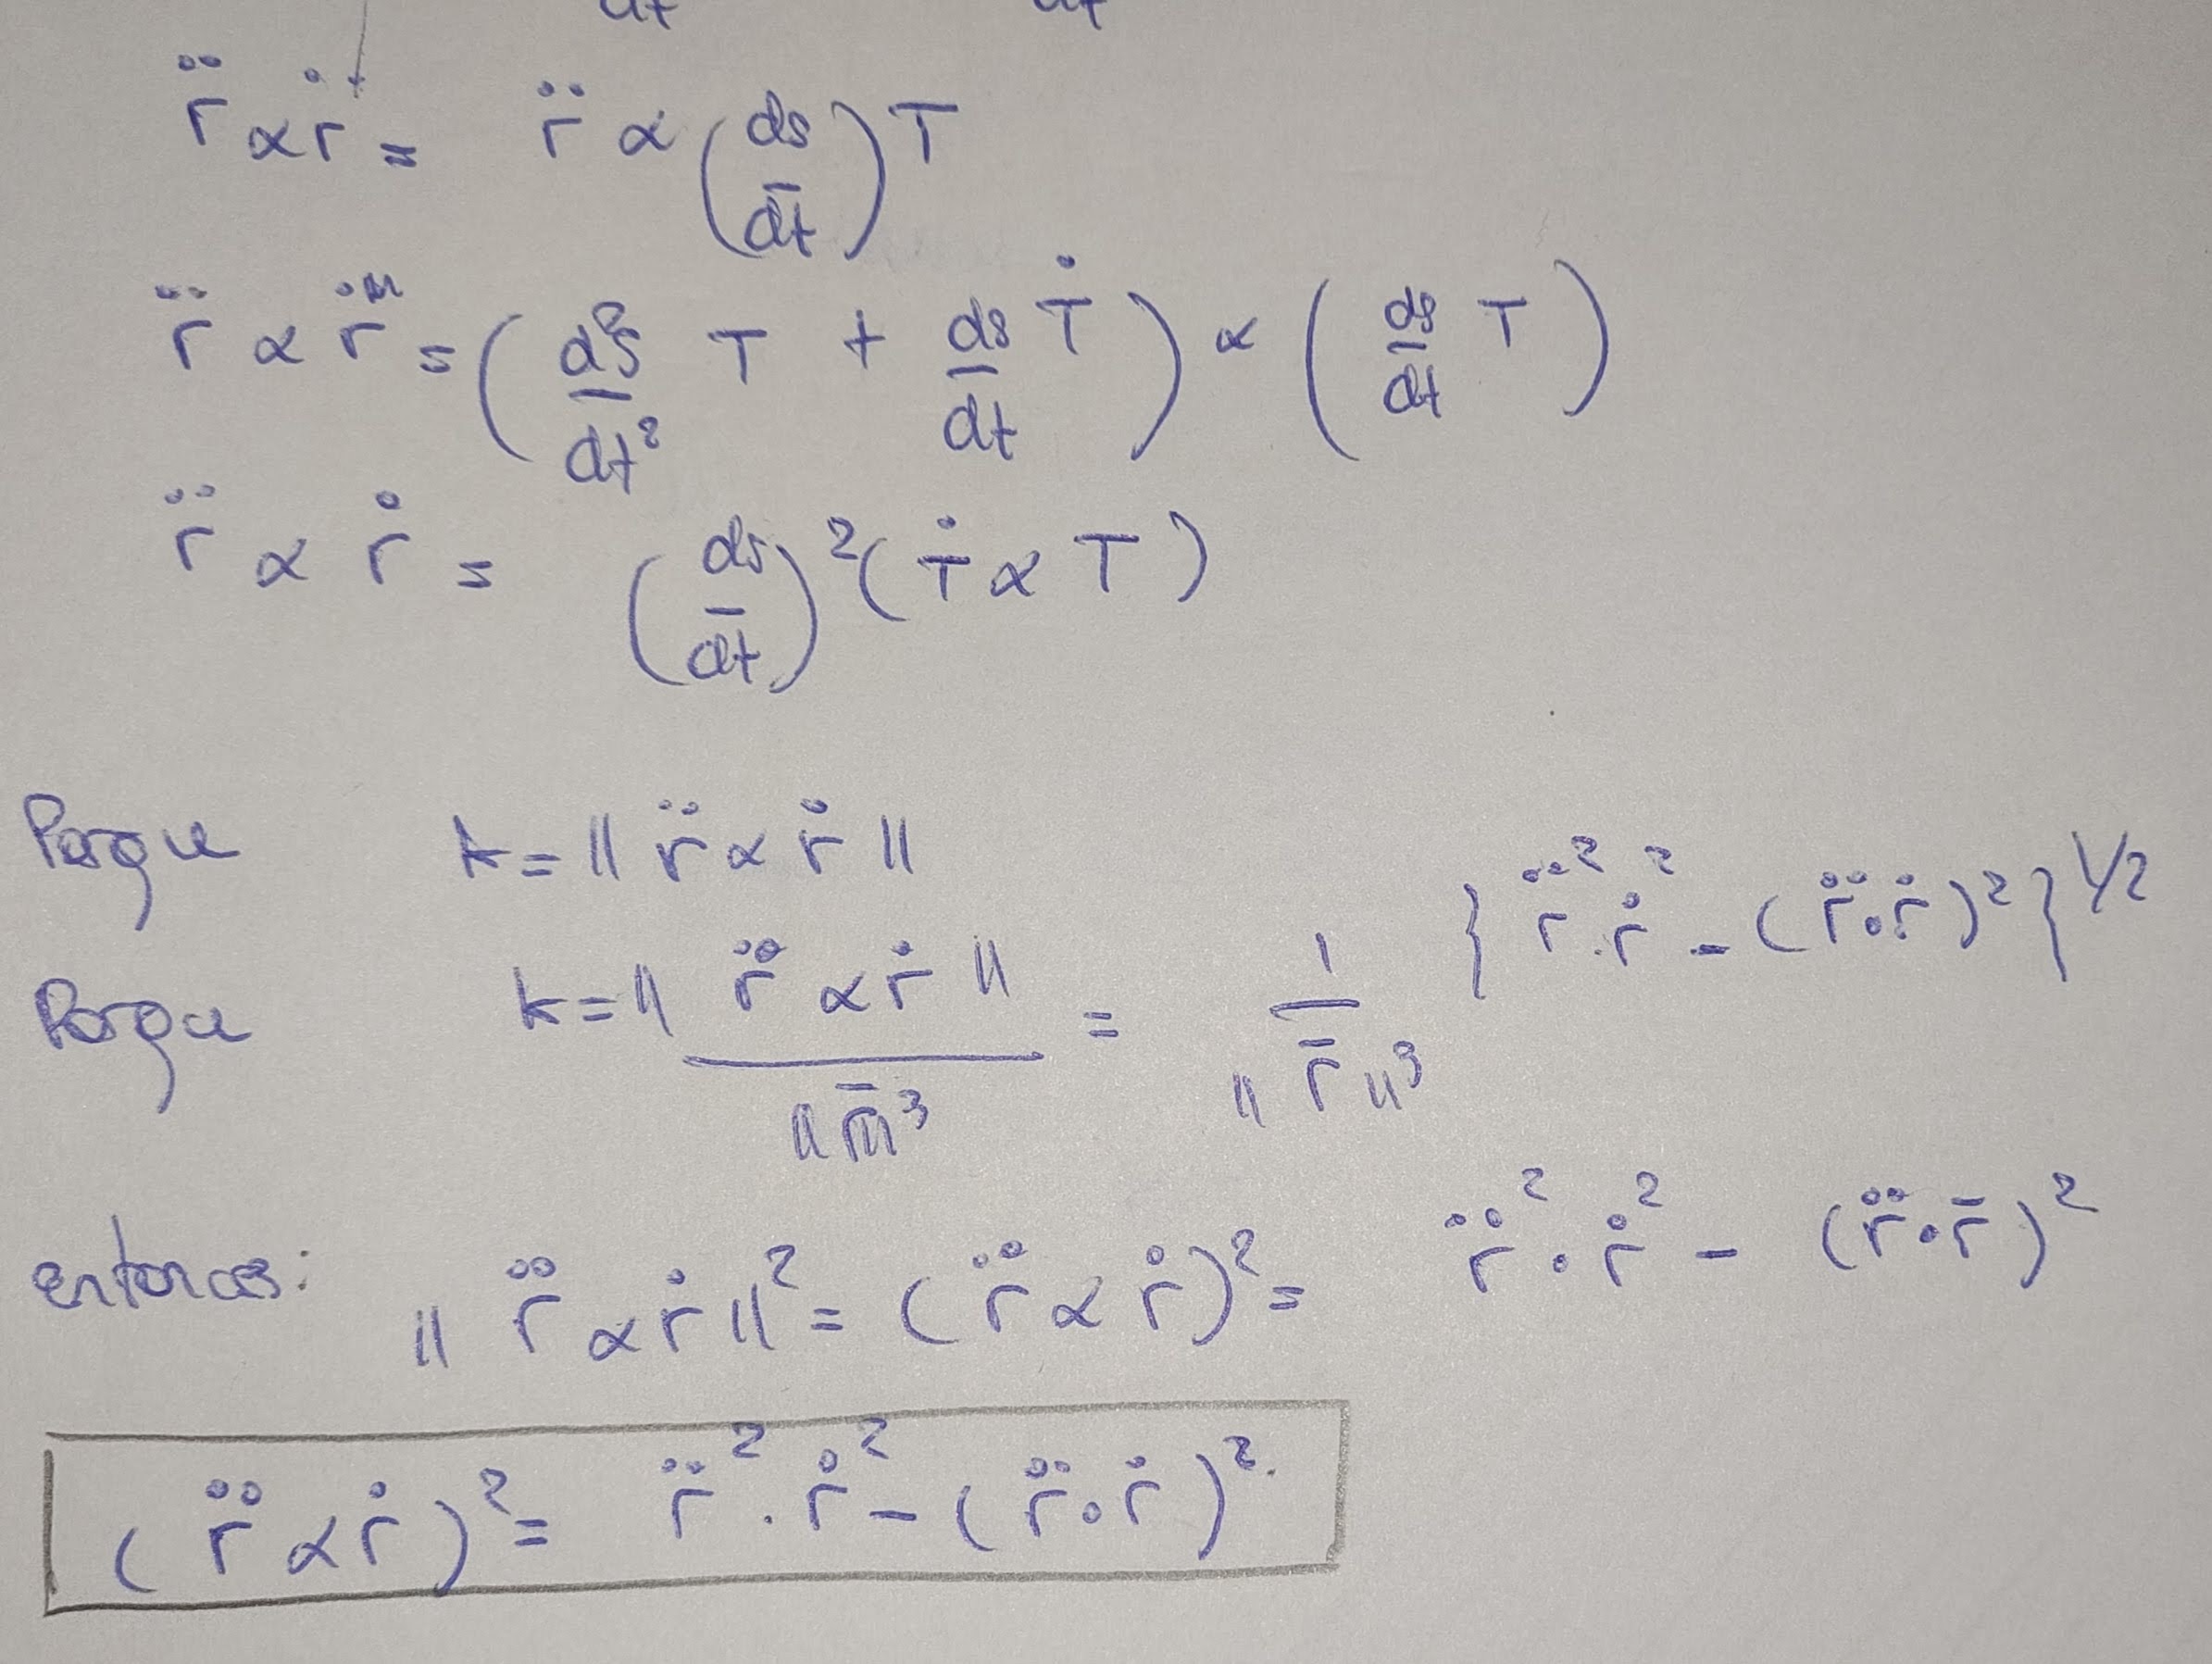 r̈ ∝ ṙ = r̈ ∝ (ds/dt) T
r̈ ∝ ṙ = (d²s/dt² T + ds/dt Ṫ) ∝ (ds/dt T)
r̈ ∝ ṙ = (ds/dt)² (Ṫ ∝ T)
Porque k = || r̈ ∝ ṙ ||
Porque k = || r̈ ∝ ṙ || / || r̄ ||³ = 1 / || r̄ ||³ { r̈² · ṙ² - (r̈ · ṙ)² }^1/2
entonces: || r̈ ∝ ṙ ||² = (r̈ ∝ ṙ)² = r̈² · ṙ² - (r̈ · r̄)²
(r̈ ∝ ṙ)² = r̈² · ṙ² - (r̈ · ṙ)².